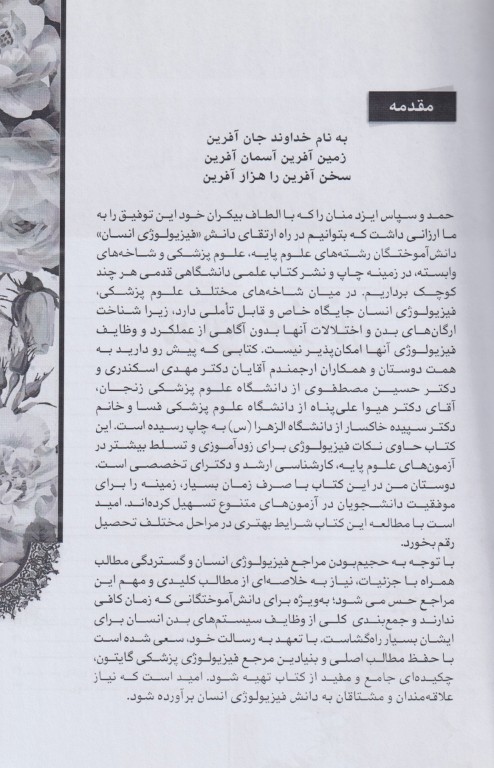 مقدمه
به نام خداوند جان آفرین
زمین آفرین آسمان آفرین
سخن آفرین را هزار آفرین
حمد و سپاس ایزد منان را که با الطاف بیکران خود این توفیق را به
ما ارزانی داشت که بتوانیم در راه ارتقای دانش «فیزیولوژی انسان»
دانش‌آموختگان رشته‌های علوم پایه، علوم پزشکی و شاخه‌های
وابسته، در زمینه چاپ و نشر کتاب علمی دانشگاهی قدمی هر چند
کوچک برداریم. در میان شاخه‌های مختلف علوم پزشکی،
فیزیولوژی انسان جایگاه خاص و قابل تأملی دارد، زیرا شناخت
ارگان‌های بدن و اختلالات آنها بدون آگاهی از عملکرد و وظایف
فیزیولوژی آنها امکان‌پذیر نیست. کتابی که پیش رو دارید به
همت دوستان و همکاران ارجمندم آقایان دکتر مهدی اسکندری و
دکتر حسین مصطفوی از دانشگاه علوم پزشکی زنجان،
آقای دکتر هیوا علی‌پناه از دانشگاه علوم پزشکی فسا و خانم
دکتر سپیده خاکسار از دانشگاه الزهرا (س) به چاپ رسیده است. این
کتاب حاوی نکات فیزیولوژی برای زودآموزی و تسلط بیشتر در
آزمون‌های علوم پایه، کارشناسی ارشد و دکترای تخصصی است.
دوستان من در این کتاب با صرف زمان بسیار، زمینه را برای
موفقیت دانشجویان در آزمون‌های متنوع تسهیل کرده‌اند. امید
است با مطالعه این کتاب شرایط بهتری در مراحل مختلف تحصیل
رقم بخورد.
با توجه به حجیم‌بودن مراجع فیزیولوژی انسان و گستردگی مطالب
همراه با جزئیات، نیاز به خلاصه‌ای از مطالب کلیدی و مهم این
مراجع حس می شود؛ به‌ویژه برای دانش‌آموختگانی که زمان کافی
ندارند و جمع‌بندی کلی از وظایف سیستم‌های بدن انسان برای
ایشان بسیار راه‌گشاست. با تعهد به رسالت خود، سعی شده است
با حفظ مطالب اصلی و بنیادین مرجع فیزیولوژی پزشکی گایتون،
چکیده‌ای جامع و مفید از کتاب تهیه شود. امید است که نیاز
علاقه‌مندان و مشتاقان به دانش فیزیولوژی انسان برآورده شود.